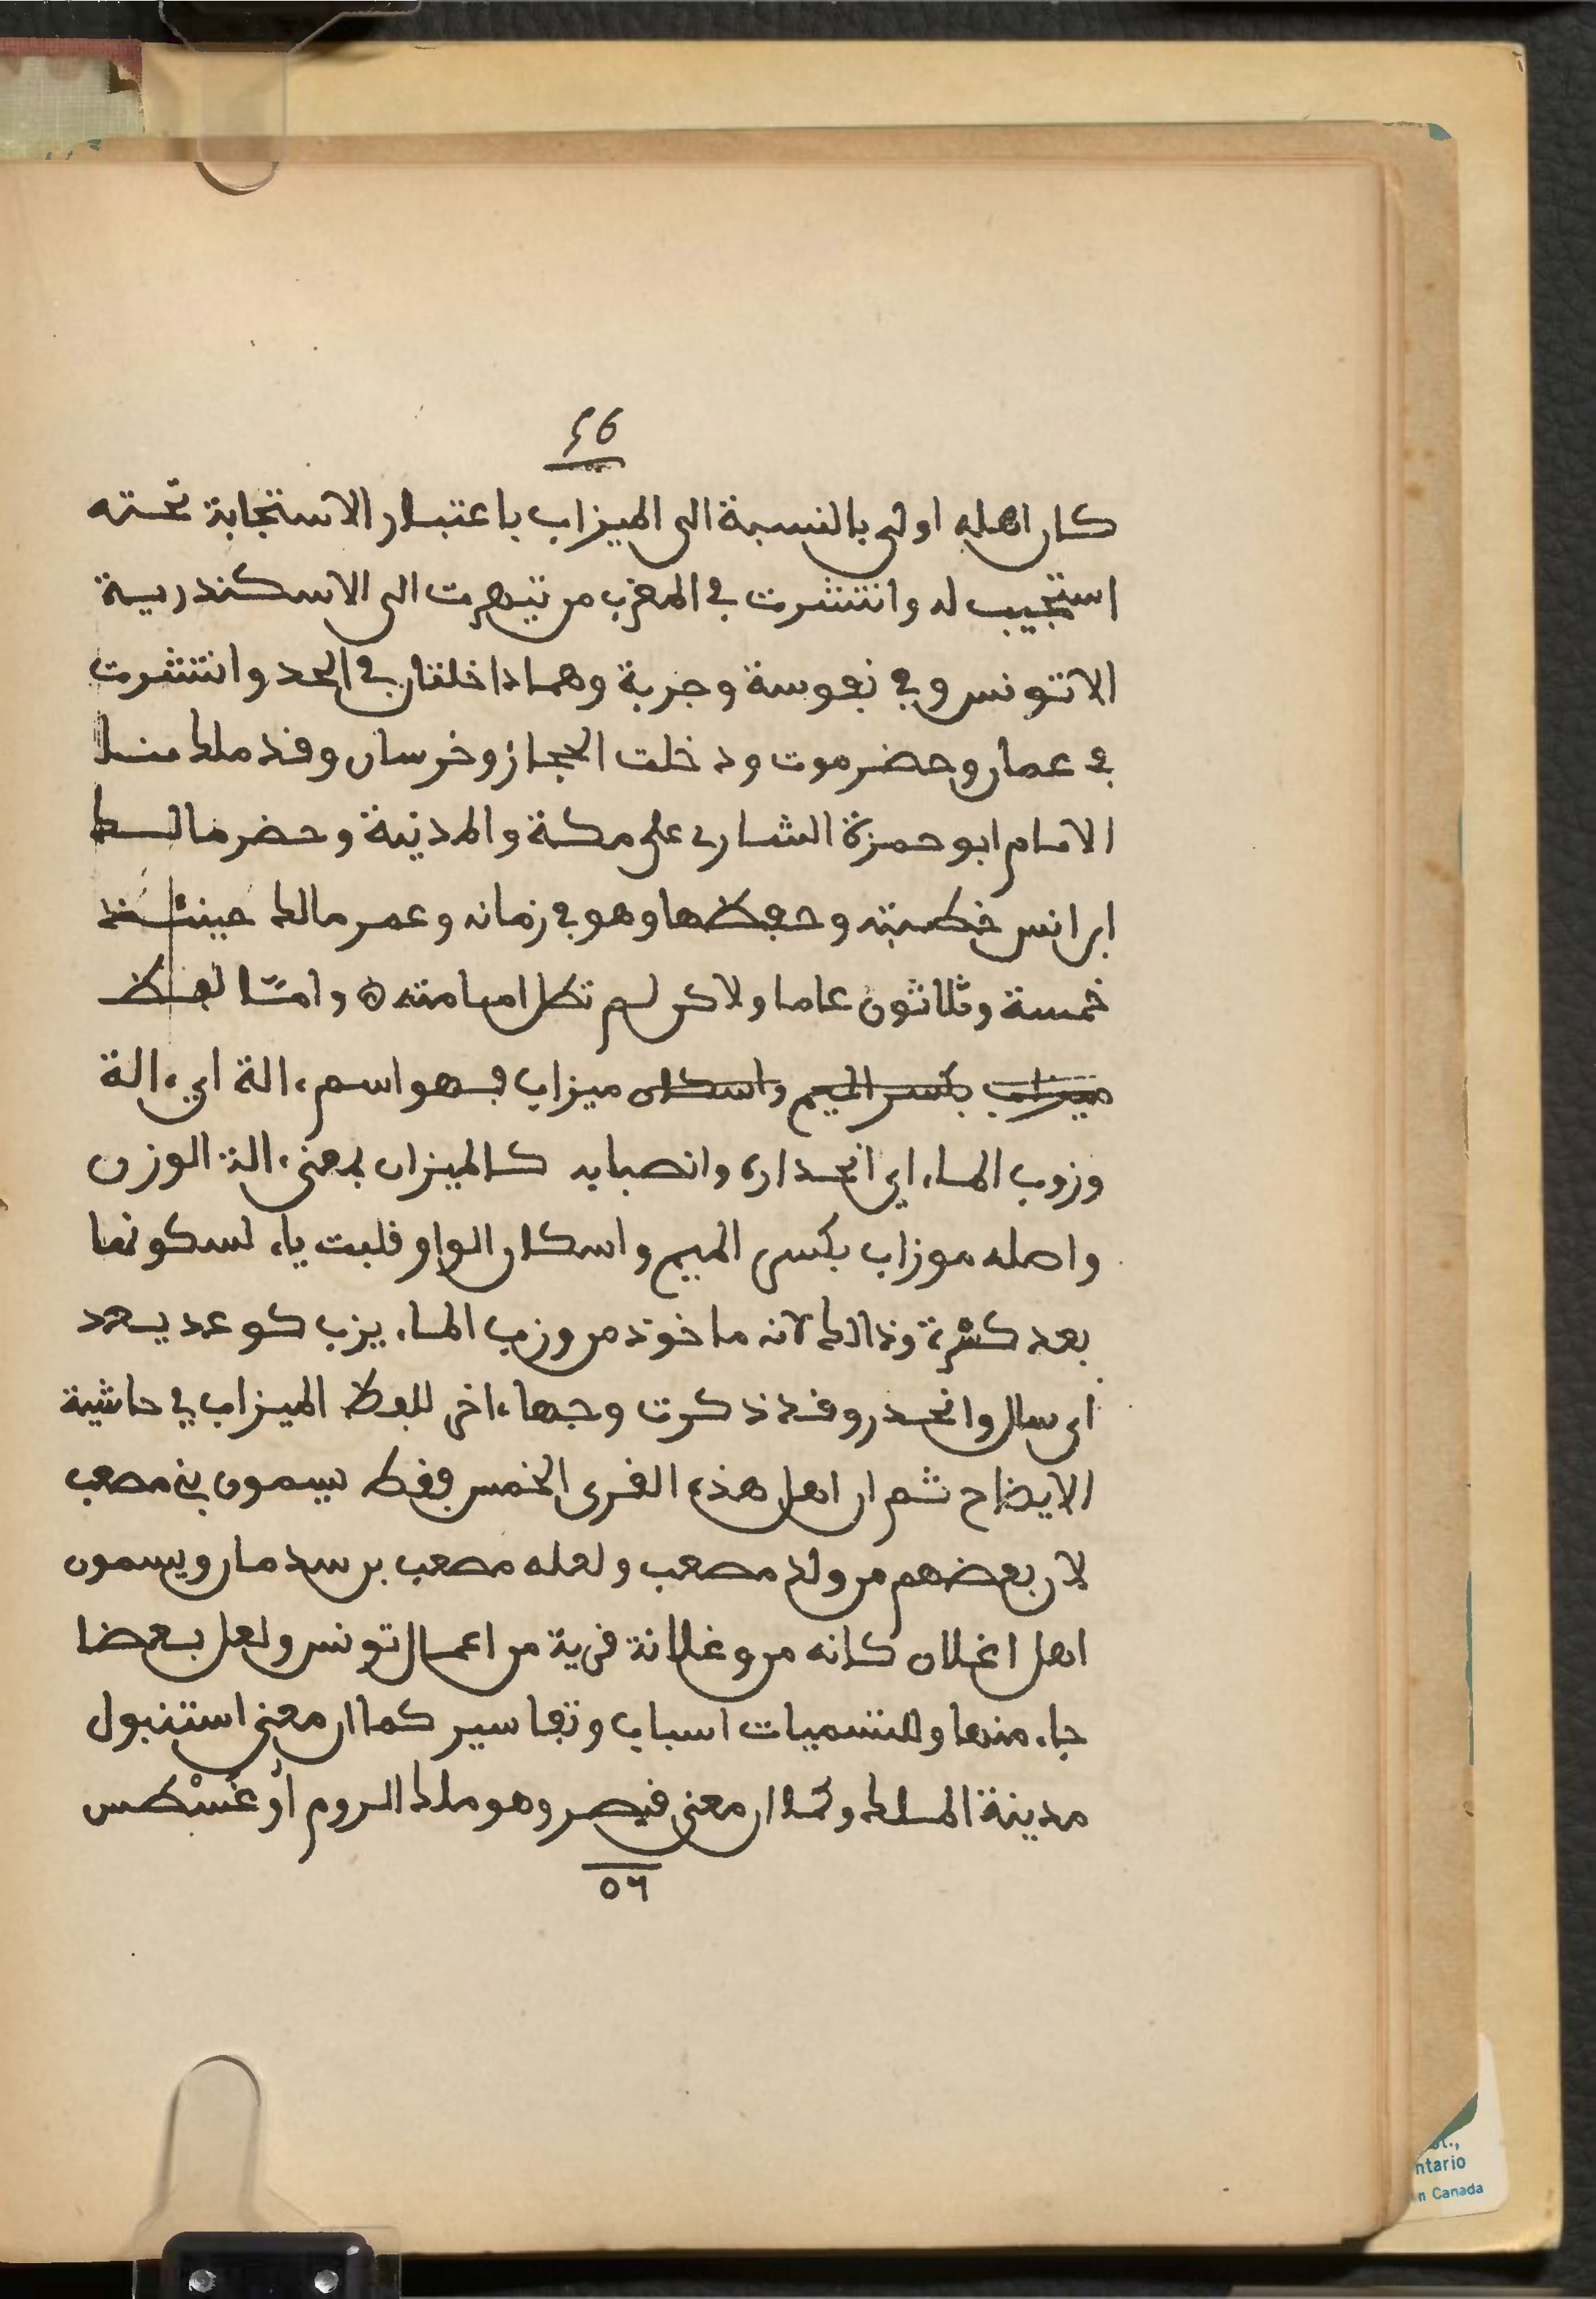 ٤٦
كان اهله اولى بالنسبة الى الميزاب باعتبار الاستجابة تحته
استجيب له وانتشرت في المغرب من تيهرت الى الاسكندرية
الا تونس وفي نفوسة وجربة وهما داخلتان في الحد وانتشرت
في عمان وحضرموت ودخلت الحجاز وخرسان وقد ملك منا
الامام ابو حمزة الشاري على مكة والمدينة وحضر مالك
ابن انس خطبته وحفظها وهو في زمانه وعمر مالك حينئذ
خمسة وثلاثون عاما ولاكن لم تطل امامته ۞ وامّا لفظ
ميزاب بكسر الميم واسكان ميزاب فهو اسم ءالة اي ءالة
وزوب الماء اي انحداره وانصبابه كالميزان بمعنى ءالة الوزن
واصله موزاب بكسر الميم واسكان الواو قلبت ياء لسكونها
بعد كسرة وذالك لانه ماخوذ من وزب الماء يزب كوعد يعد
اى سال وانحدر وقد ذكرت وجها ءاخر للفظ الميزاب في حاشية
الايضاح ثم ان اهل هذه القرى الخمس فقط يسمون بني مصعب
لان بعضهم من ولد مصعب ولعله مصعب بن سدمان ويسمون
اهل اغلان كانه من وغلانة قرية من اعمال تونس ولعل بعضا
جاء منها وللتسميات اسباب وتفاسير كما ان معنى استنبول
مدينة الملك وكما ان معنى قيصر وهو ملك الروم أوغُسْطس
٥٦
ntario
n Canada